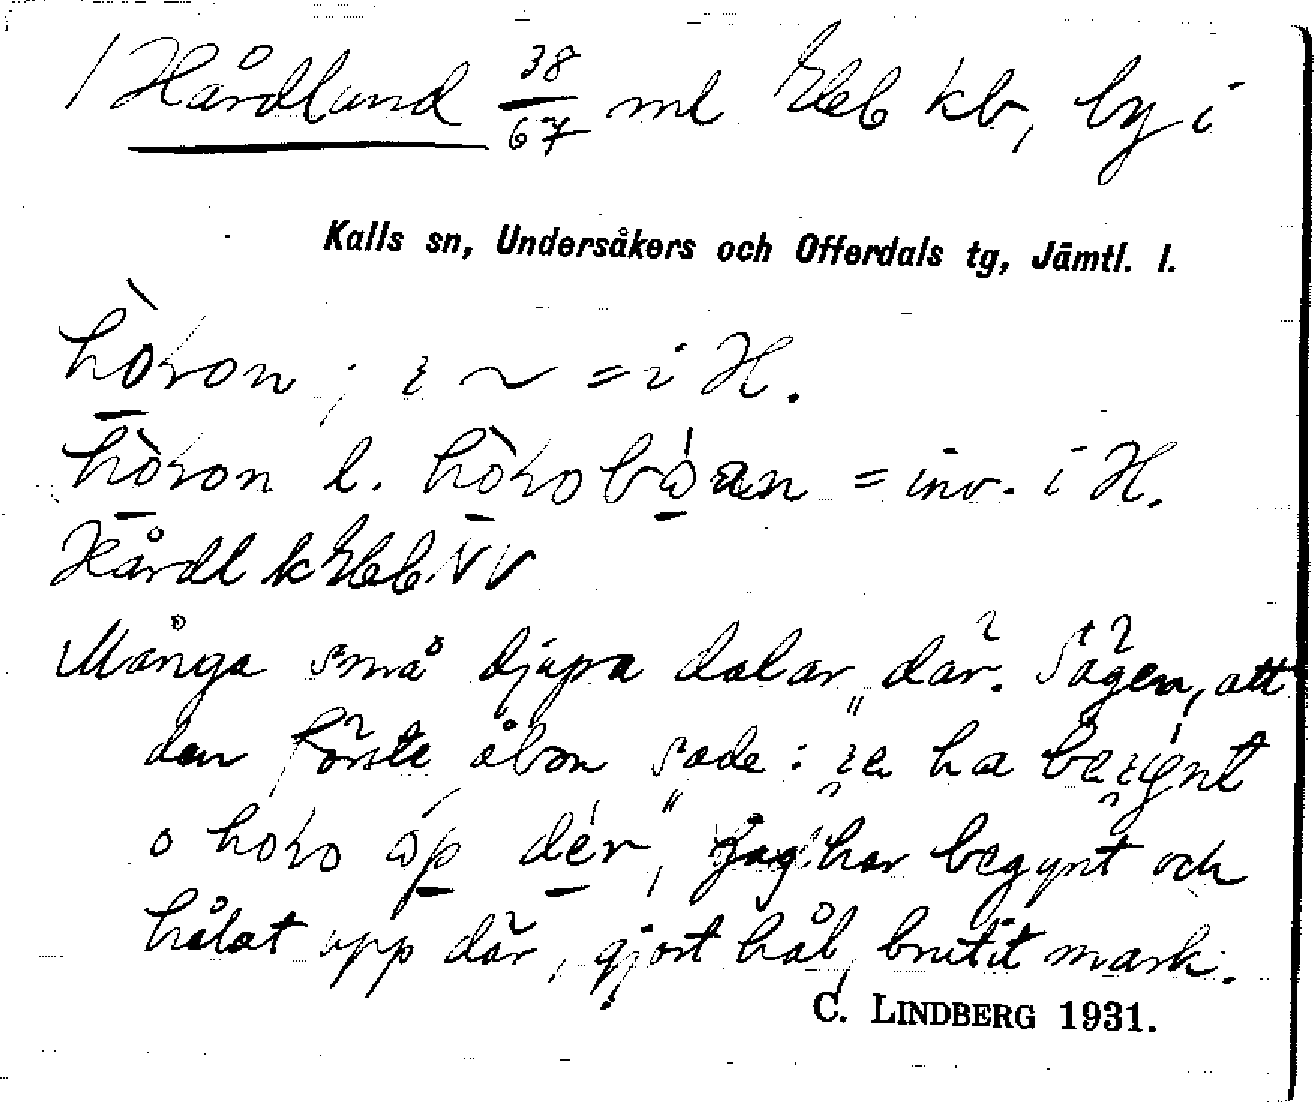 1 Hårdland 38/67 ml Ebb kb, by i
Kalls sn, Undersåkers och Offerdals tg, Jämtl. l.
hòron; i ~ = i H.
hòron l. = inv. i H.
Hårdl k Ebb.
Många små djupa dalar där. Sägen, att
den förste åbon sade: ha
o horo òp dér, Jag har begynt och
hålat upp där, gjort hål, brutit mark.
C. LINDBERG 1931.